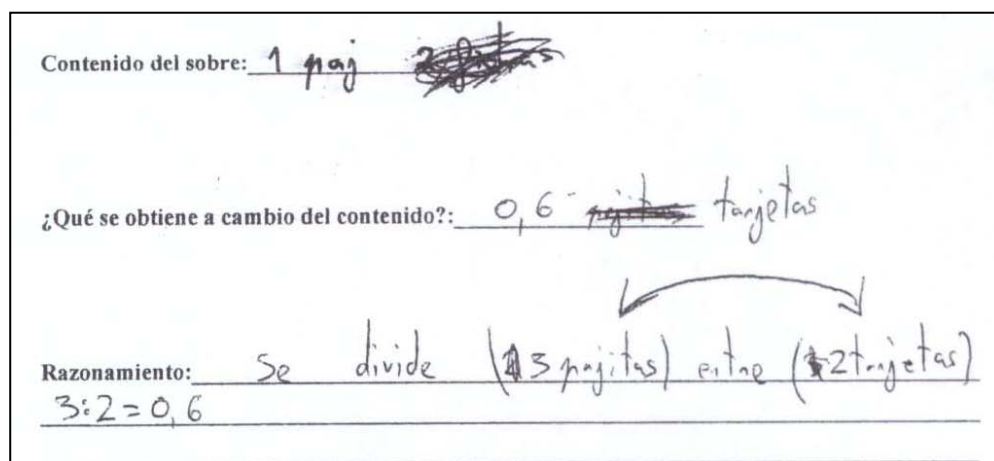 Contenido del sobre: 1 paj
¿Qué se obtiene a cambio del contenido?: 0,6 tarjetas
Razonamiento: Se divide (3 pajitas) entre (2 tarjetas)
3:2=0,6